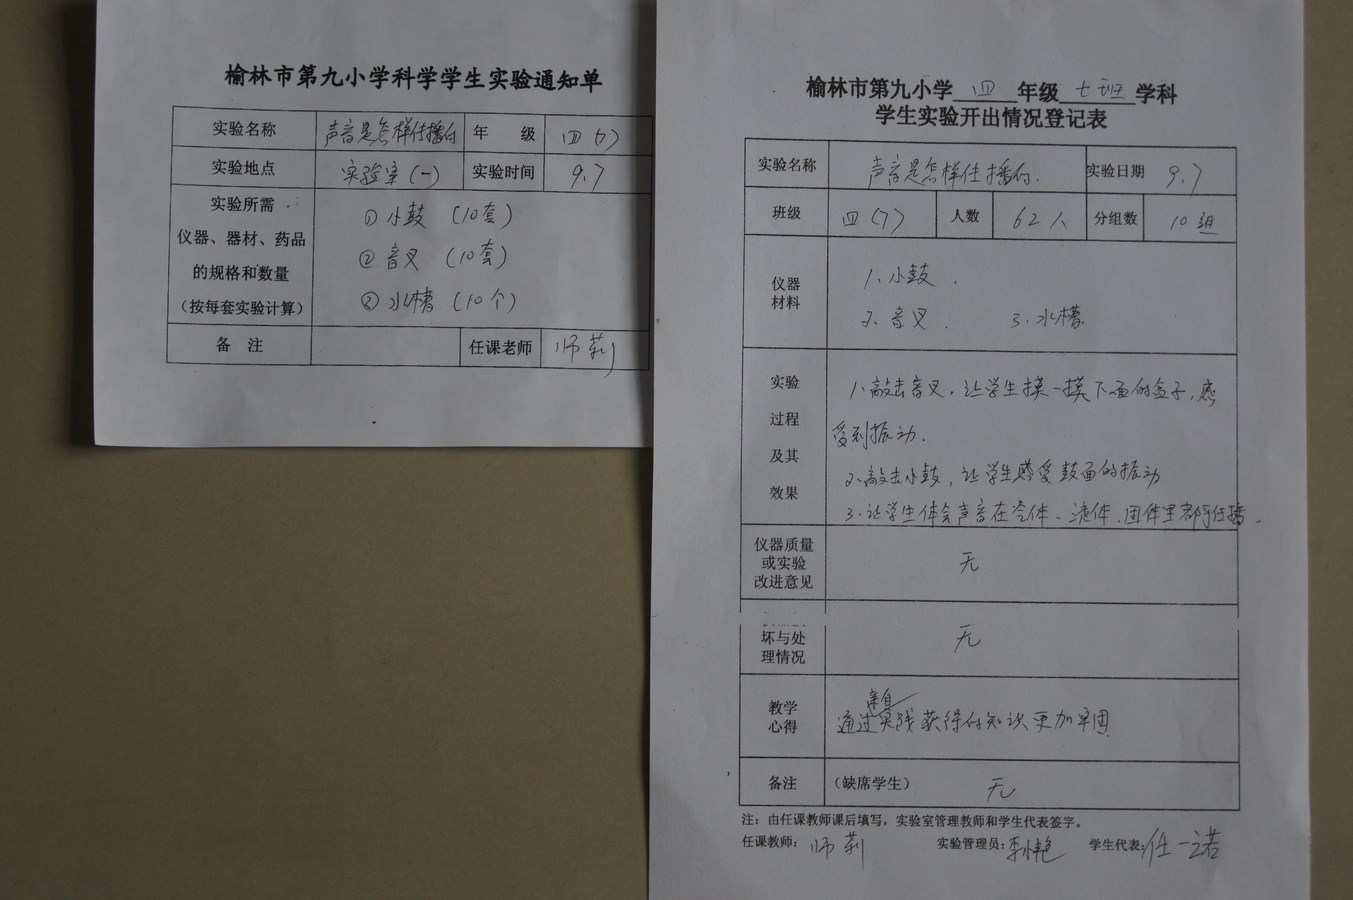 榆林市第九小学科学学生实验通知单
实验名称 声音是怎样传播的 年 级 四(7)
实验地点 实验室(一) 实验时间 9.7
实验所需
仪器、器材、药品
的规格和数量
(按每套实验计算)
① 小鼓 (10套)
② 音叉 (10套)
③ 水槽 (10个)
备 注 任课老师 师莉
榆林市第九小学 四 年级 七班 学科
学生实验开出情况登记表
实验名称 声音是怎样传播的. 实验日期 9.7
班级 四(7) 人数 62人 分组数 10组
仪器
材料
1、小鼓.
2、音叉. 3、水槽.
实验
过程
及其
效果
1、敲击音叉,让学生摸一摸下面的盒子,感
受到振动.
2、敲击小鼓,让学生感受鼓面的振动
3、让学生体会声音在气体、液体、固体里都可传播.
仪器质量
或实验
改进意见
无
坏与处
理情况
无
教学
心得
亲自
通过实践获得的知识更加牢固
备注 (缺席学生) 无
注:由任课教师课后填写,实验室管理教师和学生代表签字。
任课教师: 师莉 实验管理员: 学生代表: 任一诺